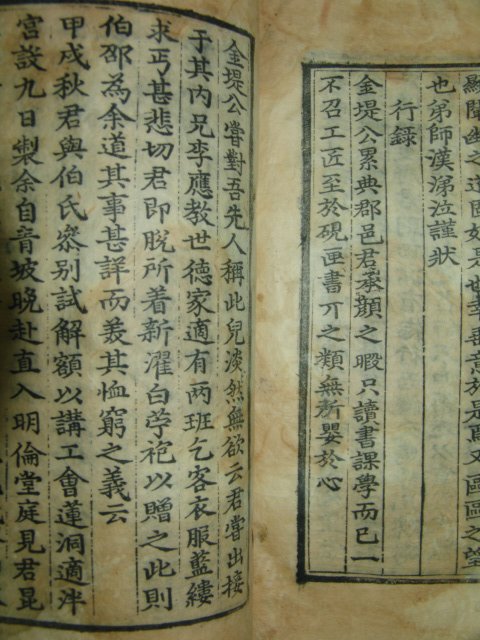 顯闡幽之道固如是也幸垂意於是焉又區區之望
也弟師漢涕泣謹狀
行録
金堤公累典郡邑君承顔之暇只讀書課學而已一
不召工匠至於硯匣書丌之類無所嬰於心
金堤公嘗對吾先人稱此兒淡然無欲云君嘗出接
于其内兄李應教世德家適有兩班乞客衣服藍縷
求丐甚悲切君即脱所着新濯白苧袍以贈之此則
伯邵為余道其事甚詳而羡其恤窮之義云
甲戌秋君與伯氏叅别試解額以講工會蓮洞適泮
宫設九日製余自音坡晩赴直入明倫堂庭見君昆